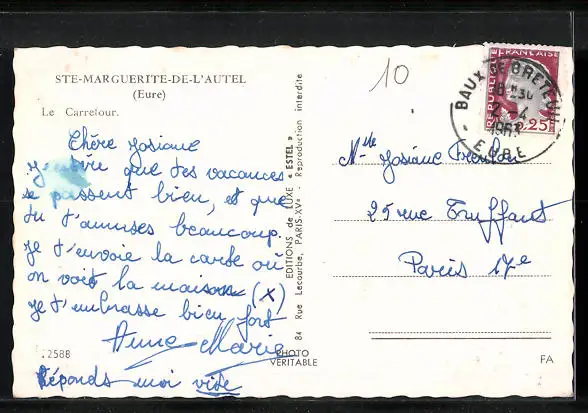 STE-MARGUERITE-DE-L'AUTEL
(Eure)
Le Carrefour.
Chère Josiane
J'espère que tes vacances
se passent bien, et que
tu t'amuses beaucoup.
Je t'envoie la carte où
on voit la maison (X)
Je t'embrasse bien fort
Anne-Marie
Réponds moi vite
.2588
PHOTO
VERITABLE
EDITIONS de LUXE « ESTEL »
84 Rue Lecourbe, PARIS-XV° - Reproduction interdite
10
REPUBLIQUE FRANÇAISE
0.25
BAUX DE BRETEUIL
2-4
EURE
Mlle Josiane
25 rue Truffaut
Paris 17e
FA